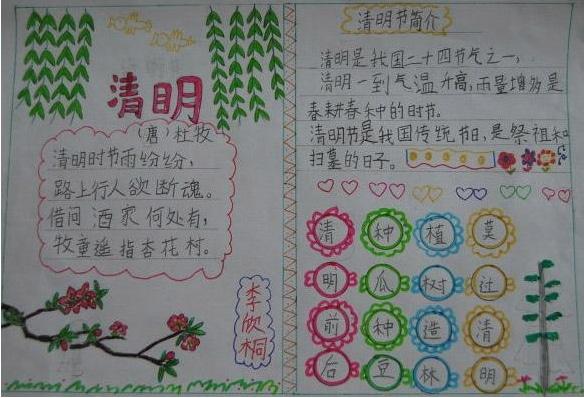 清明
(唐)杜牧
清明时节雨纷纷,
路上行人欲断魂。
借问酒家何处有,
牧童遥指杏花村。
李
桐
清明节简介
清明是我国二十四节气之一,
清明一到气温升高,雨量增多是
春耕春种的时节。
清明节是我国传统节日,是祭祖和
扫墓的日子。
清 种 植 莫
明 瓜 树 过
前 种 造 清
后 豆 林 明